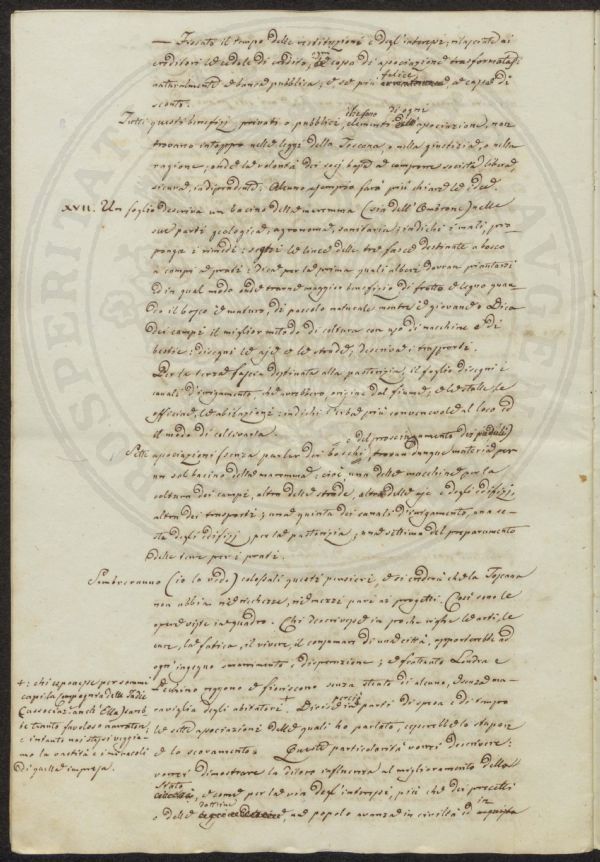 — Fissato il tempo delle restituzioni e degl'interessi, rilasciate ai
creditori le cedole di credito, la cassa di associazione trasformata
naturalmente è banca pubblica, e se più felice è cassa di
sconto.
Tutti questi benefizj privati o pubblici, elementi di ogni associazione, non
trovano intoppo nelle leggi della Toscana, o nella giustizia, o nella
ragione; onde la volontà dei socj basta a comporre società libera,
sicura, indipendente. Alcuno esempio farà più chiare le idee.
XVII. Un foglio descriva un bacino della maremma (sia dell'Ombrone) nelle
sue parti geologica, agronoma, sanitaria; indichi i mali, pro-
ponga i rimedj: segni le linee delle tre fasce destinate a bosco
a campi a prati: dica per la prima quali alberi dovran piantarsi
ed in qual modo onde trarne maggior benefizio di frutto e legno quan-
do il bosco è maturo, di pascolo naturale mentre è giovane. Dica
dei campi il miglior metodo di coltura con uso di macchine e di
bestie: disegni le aje e le strade, descriva i trasporti.
Per la terza fascia destinata alla pastorizia, il foglio disegni i
canali d'irrigamento, che avrebbero origine dal fiume, e le stalle, le
officine, le abitazioni: indichi l'erba più convenevole al loco ed
il modo di coltivarla.
e del prosciugamento dei paduli)
Sette associazioni (senza parlar dei boschi, trovan dunque materia per
un sol bacino della maremma: cioè, una delle macchine per la
coltura dei campi, altra delle strade, altra delle aje e degli edifizj,
altra dei trasporti; una quinta dei canali d'irrigamento, una se-
sta degli edifizj per la pastorizia; una settima del preparamento
delle terre per i prati.
Sembreranno (io lo vedo) colossali questi pensieri, e si crederà che la Toscana
non abbia nè ricchezze, nè mezzi pari ai progetti. Così sono le
opere viste in quadro. Chi descrivesse in poche righe le arti, le
cure, la fatica, il vivere, il consumare di una città, apporterebbe ad
ogni ingegno smarrimento, disperazione; e frattanto Londra e
Pechino reggono e fioriscono senza stento di alcuno, e senza ma-
raviglia degli abitatori. Divise in parti di spesa e di tempo
le sette associazioni delle quali ho parlato, cesserebbe lo stupore
e lo scoramento. Queste particolarità vorrei descrivere:
vorrei dimostrare la di loro influenza al miglioramento dello
Stato, e come per la via degl'interessi, più che dei precetti
o delle dottrine, un popolo avanza in civiltà ed in
+: chi esponesse per sommi
capi la Compagnia delle Indie
(associazione anch'Ella) sareb-
be tenuto favoloso narratore,
e intanto noi stessi veggia-
mo la vastità e i miracoli
di quelle imprese.